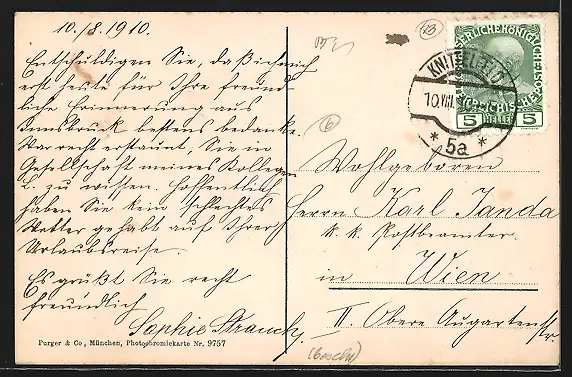 10./8. 1910.
Entschuldigen Sie, daß ich mich
erst heute für Ihre freund-
liche Erinnerung aus
Innsbruck bestens bedanke.
War recht erstaunt, Sie in
Gesellschaft meines Kollegen
L. zu wissen. Hoffentlich
haben Sie kein schlechtes
Wetter gehabt auf Ihrer
Urlaubsreise.
Es grüßt Sie recht
freundlich
Sophie Strauch.
Purger & Co., München, Photochromiekarte Nr. 9757
13
KNITTELFELD
10.VIII
* 5a *
5 HELLER 5
6
Wohlgeboren
Herrn Karl Janda
k. k. Postbeamter
in Wien
II. Obere Augartenstr.